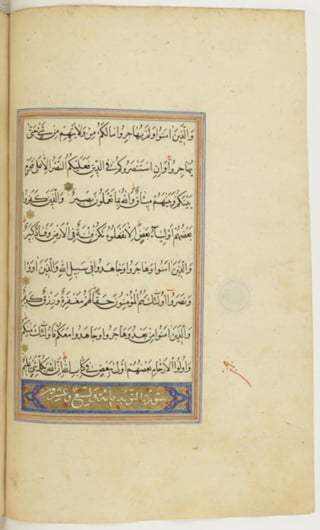 والذين امنوا ولم يهاجروا مالكم من ولايتهم من شىء حتى
يهاجروا وان استنصروكم فى الدين فعليكم النصر الا على قوم
بينكم وبينهم ميثاق والله بما تعملون بصير والذين كفروا
بعضهم اولياء بعض الا تفعلوه تكن فتنة فى الارض وفساد كبير
والذين امنوا وهاجروا وجاهدوا فى سبيل الله والذين اووا
ونصروا اولئك هم المؤمنون حقا لهم مغفرة ورزق كريم
والذين امنوا من بعد وهاجروا وجاهدوا معكم فاولئك منكم
واولوا الارحام بعضهم اولى ببعض فى كتاب الله ان الله بكل شىء عليم
سورة التوبة مائة وتسع وعشرون